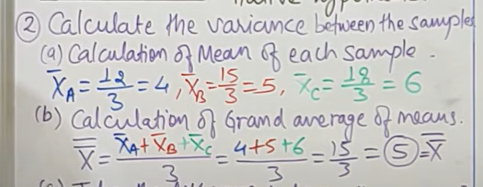 ② Calculate the variance between the samples
(a) Calculation of Mean of each sample.
X̄A = 12/3 = 4, X̄B = 15/3 = 5, X̄C = 18/3 = 6
(b) Calculation of Grand average of means.
X̿ = X̄A+X̄B+X̄C/3 = 4+5+6/3 = 15/3 = ⑤ = X̿